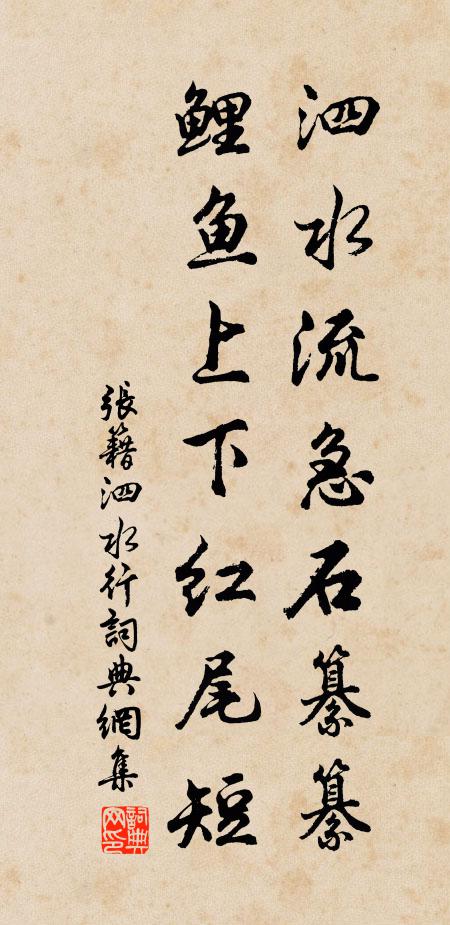 泗水流急石纂纂
鲤鱼上下红尾短
張籍泗水行詞典網集
詞典网印